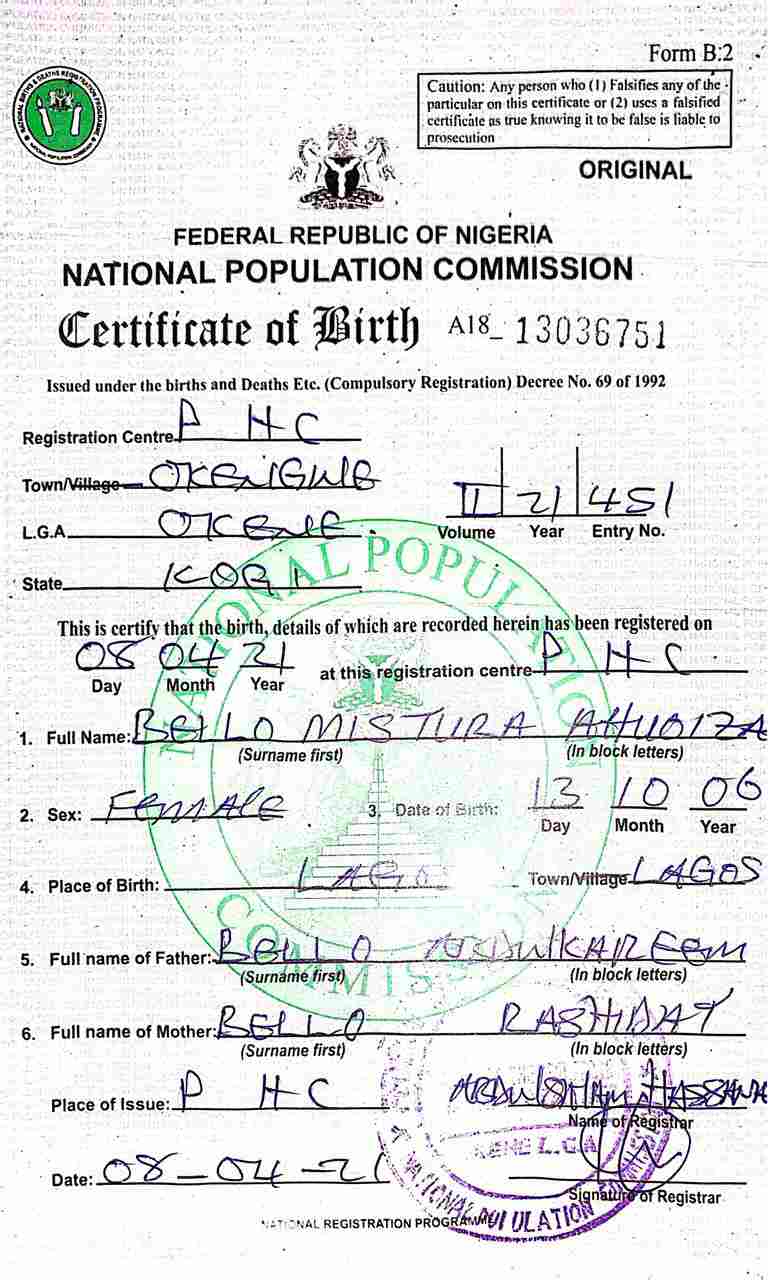 Form B:2
Caution: Any person who (1) Falsifies any of the
particular on this certificate or (2) uses a falsified
certificate as true knowing it to be false is liable to
prosecution
ORIGINAL
FEDERAL REPUBLIC OF NIGERIA
NATIONAL POPULATION COMMISSION
Certificate of Birth A18_ 13036751
Issued under the births and Deaths Etc. (Compulsory Registration) Decree No. 69 of 1992
Registration Centre P H C
Town/Village OKENGWE
L.G.A OKENE
II 21 451
Volume Year Entry No.
State KOGI
NATIONAL POPULATION COMMISSION
This is certify that the birth, details of which are recorded herein has been registered on
08 04 21 at this registration centre P H C
Day Month Year
1. Full Name: BELLO MISTURA AHUOIZA
(Surname first) (In block letters)
2. Sex: FEMALE 3. Date of Birth: 13 10 06
Day Month Year
4. Place of Birth: LAGOS Town/Village LAGOS
5. Full name of Father: BELLO ABDULKAREEM
(Surname first) (In block letters)
6. Full name of Mother: BELLO RASHIDAT
(Surname first) (In block letters)
Place of Issue: P H C HASSANA
Name of Registrar
L.G.A
Date: 08-04-21
Signature of Registrar
NATIONAL POPULATION
NATIONAL REGISTRATION PROGRAMME